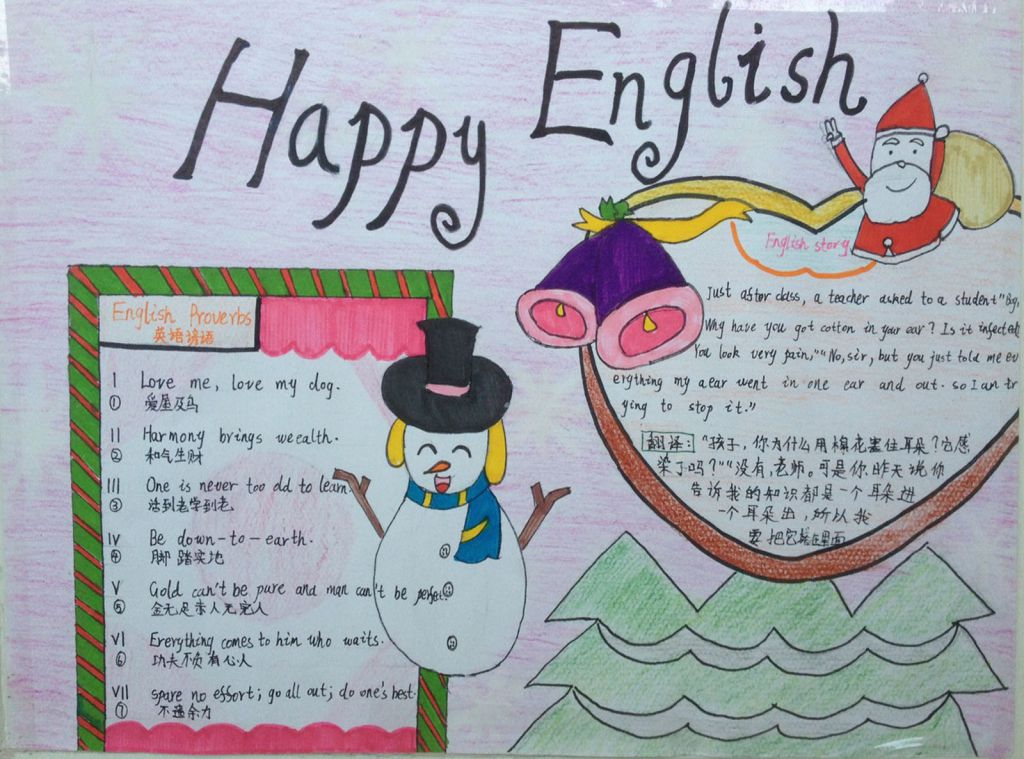 Happy English
English Proverbs
英语谚语
I Love me, love my dog.
① 爱屋及乌
II Harmony brings weealth.
② 和气生财
III One is never too old to learn.
③ 活到老学到老
IV Be down-to-earth.
④ 脚踏实地
V Gold can't be pure and man can't be perfect
⑤ 金无足赤人无完人
VI Ererything comes to him who waits.
⑥ 功夫不负有心人
VII spare no effort; go all out; do one's best.
⑦ 不遗余力
English story
Just aster class, a teacher asked to a student "Boy,
Why have you got cotton in your ear? Is it infected
You look very pain," "No, sir, but you just told me ev
erything my aear went in one ear and out. so I am tr
ying to stop it."
翻译: "孩子,你为什么用棉花塞住耳朵?它感
染了吗?" "没有,老师。可是你昨天说你
告诉我的知识都是一个耳朵进
一个耳朵出,所以我
要把它装在里面